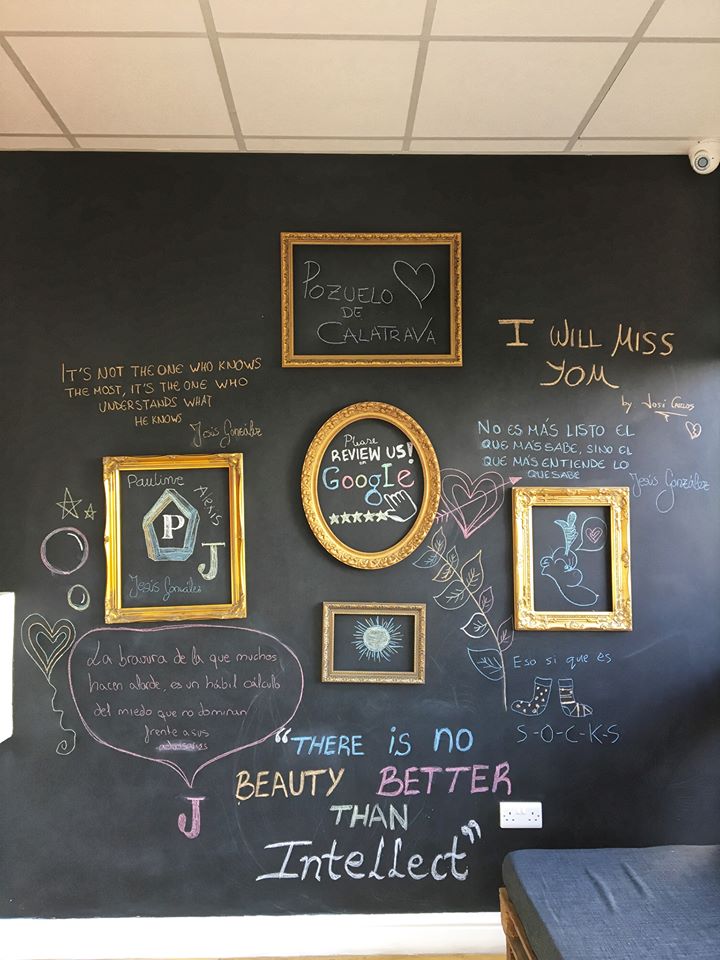 POZUELO
DE
CALATRAVA
I WILL MISS
YOM
by José Carlos
IT'S NOT THE ONE WHO KNOWS
THE MOST, IT'S THE ONE WHO
UNDERSTANDS WHAT
HE KNOWS
Jesús González
Please
REVIEW US!
on
GOOGLE
NO ES MÁS LISTO EL
QUE MÁS SABE, SINO EL
QUE MÁS ENTIENDE LO
QUE SABE
Jesús González
Pauline
Alexis
P
J
Jesús González
La bravura de la que muchos
hacen alarde, es un hábil cálculo
del miedo que no dominan
frente a sus
J
Eso si que es
S-O-C-K-S
"THERE IS NO
BEAUTY BETTER
THAN
Intellect"